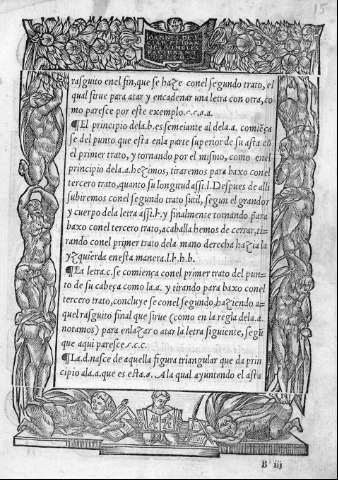 15
rasguito enel fin, que se haze conel segundo trato, el
qual sirue para atar y encadenar una letra con otra, co
mo paresce por este exemplo.c.c.a.a.
¶El principio dela.b.es semejante al dela.a. comiẽça
se del punto, que esta enla parte superior de su asta cõ
el primer trato, y tornando por el mismo, como enel
principio dela.a.hezimos, tiraremos para baxo conel
tercero trato, quanto su longitud assi.l. Despues de alli
subiremos conel segundo trato sutil, segun el grandor
y cuerpo dela letra assi.b. y finalmente tornando para
baxo conel tercero trato, acaballa hemos de cerrar, ti-
rando conel primer trato dela mano derecha hazia la
yzquierda enesta manera.l.b.b.b.
¶La letra.c.se comiença conel primer trato del pun-
to de su cabeça como la.a. y tirando para baxo conel
tercero trato, concluye se conel segundo, haziendo a-
quel rasguito final que sirue (como en la regla dela.a.
notamos) para enlazar o atar la letra siguiente, segũ
que aqui paresce.c.c.
¶La.d.nasce de aquella figura triangular que da prin-
cipio ala.a.que es esta.a. A la qual ayuntando el asta
B iij